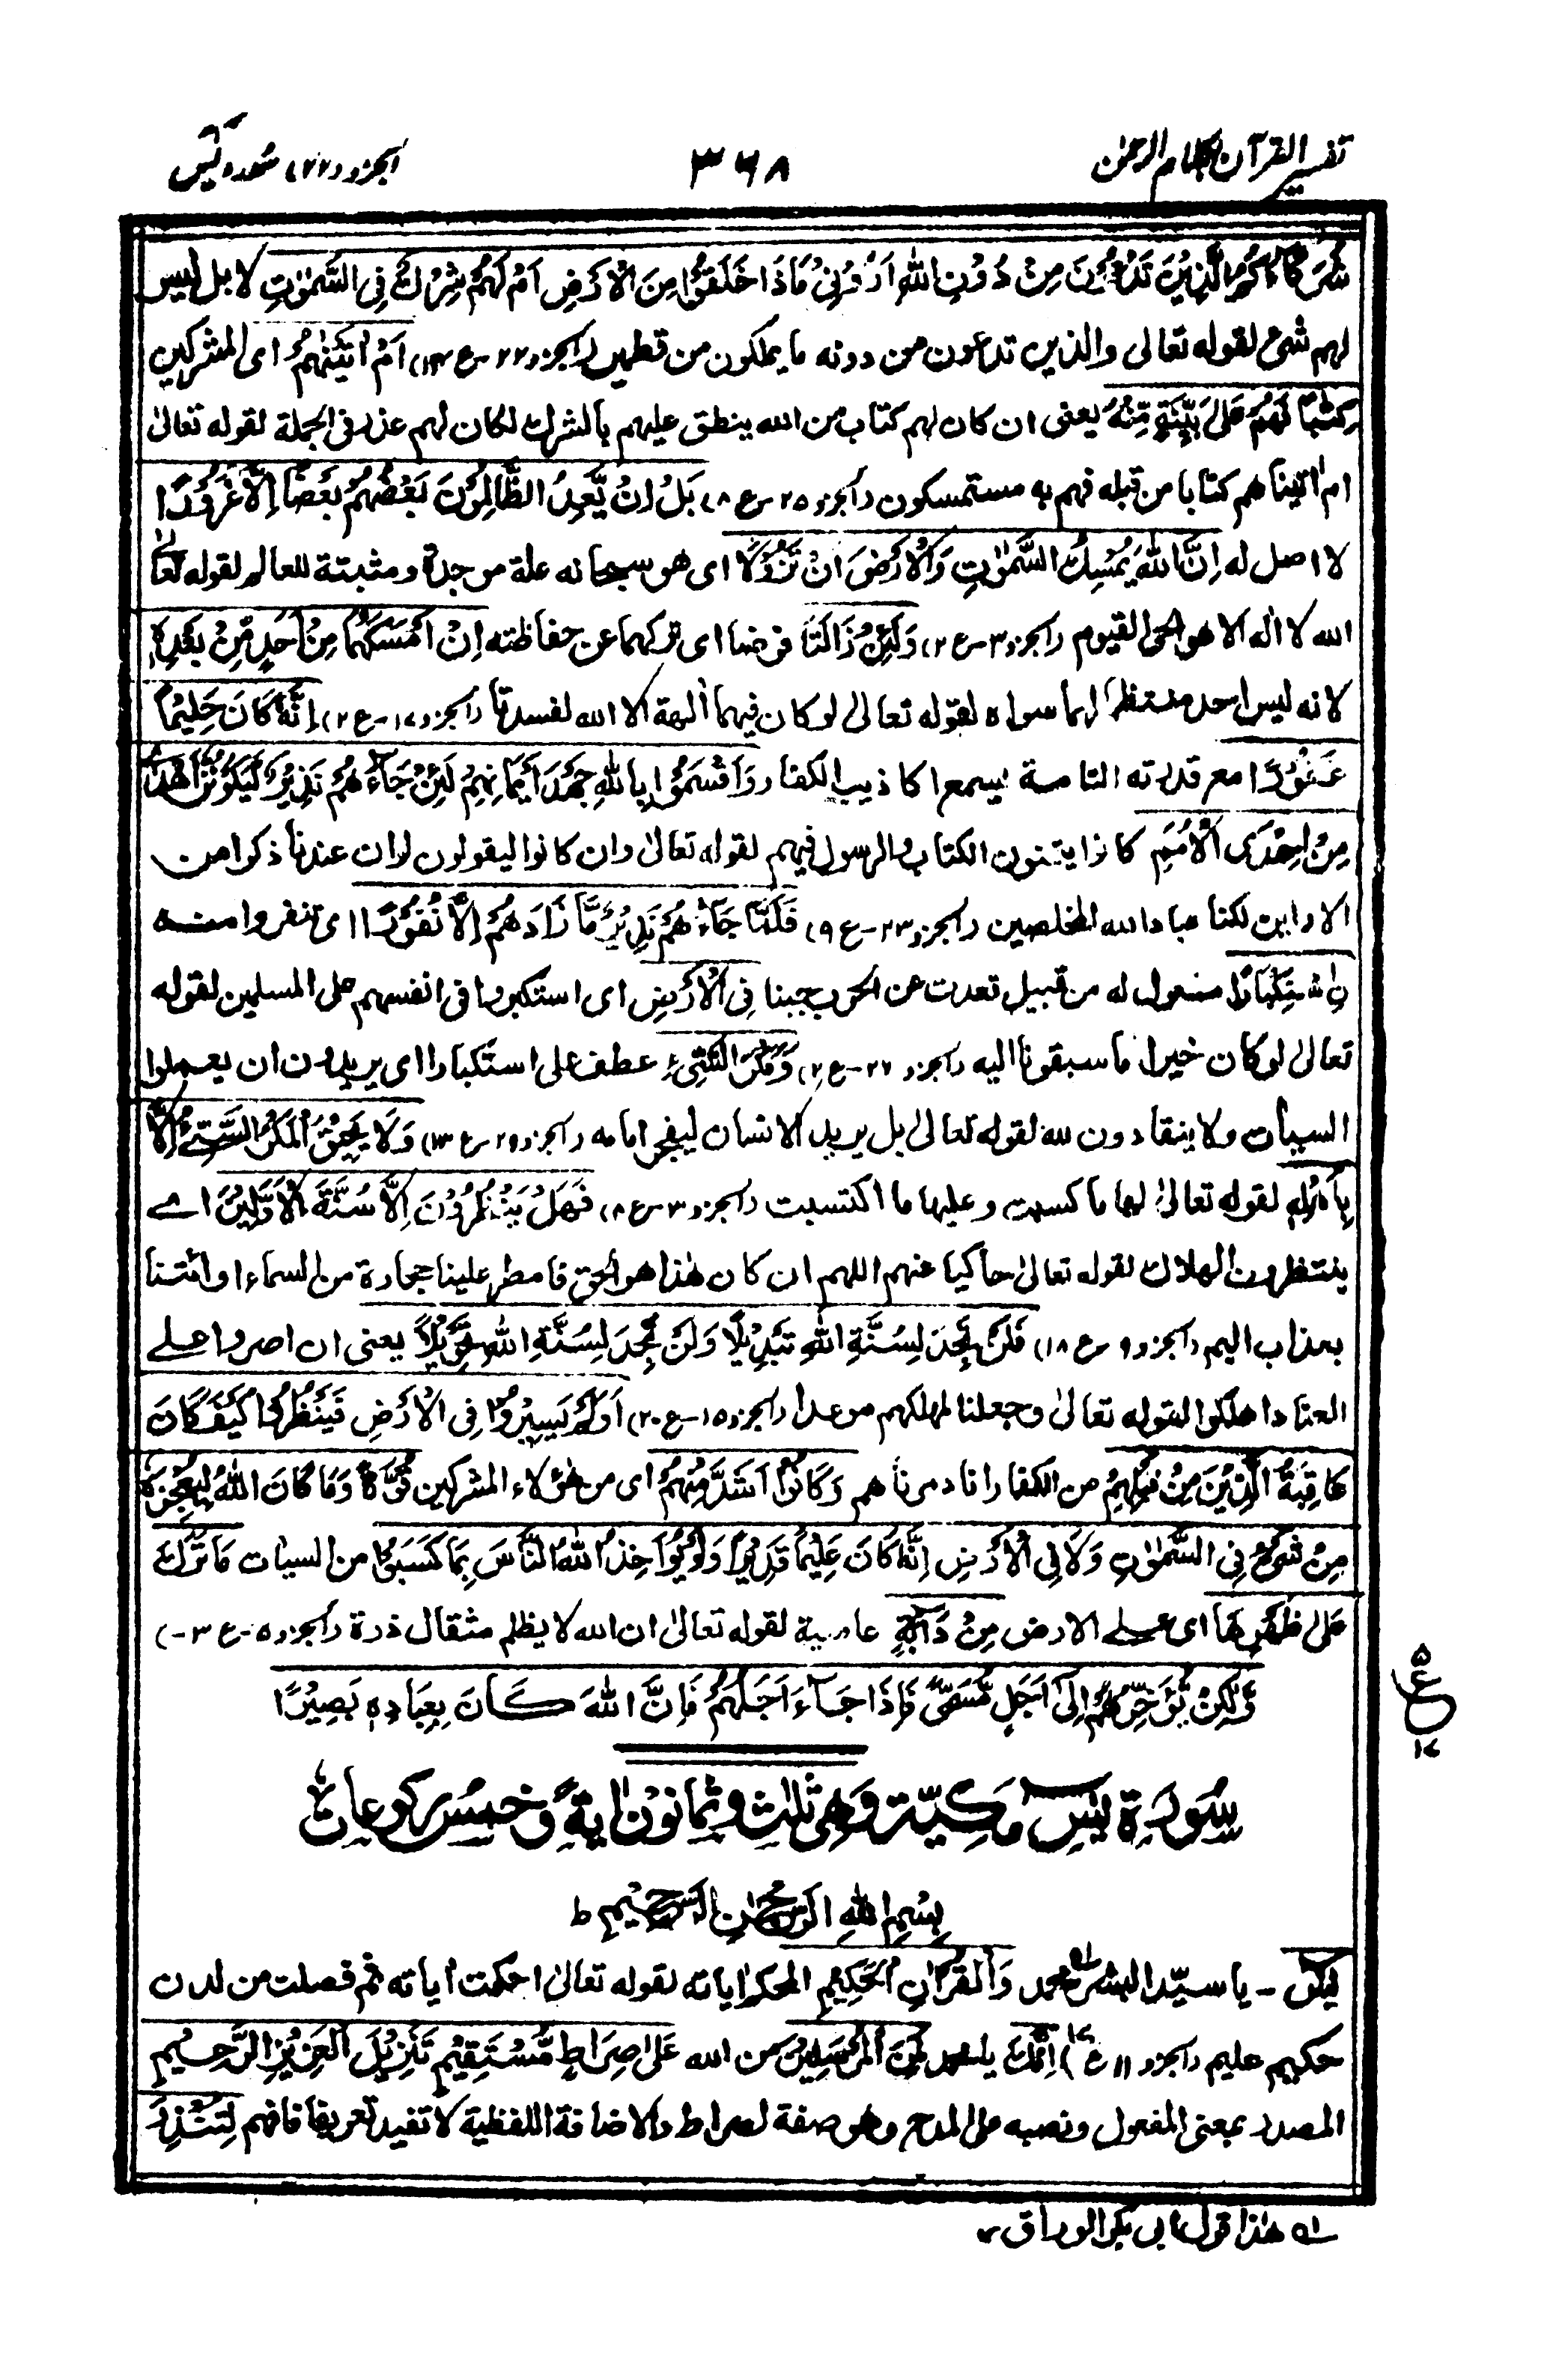 تفسير القرآن بكلام الرحمٰن
٣٦٨
الجزو (٢٢) سُورة يٰسٓ
شُرَكَآءَكُمُ الَّذِيْنَ تَدْعُوْنَ مِنْ دُوْنِ اللّٰهِ اَرُوْنِيْ مَاذَا خَلَقُوْا مِنَ الْاَرْضِ اَمْ لَهُمْ شِرْكٌ فِي السَّمٰوٰتِ لا بل ليس
لهم شئ لقوله تعالى والذين تدعون من دونه ما يملكون من قطمير (الجزو ٢٢ - ع ١٤) اَمْ اٰتَيْنٰهُمْ اى المشركين
كِتٰبًا فَهُمْ عَلٰى بَيِّنَةٍ مِّنْهُ يعنى ان كان لهم كتاب من الله ينطق عليهم بالشرك لكان لهم عذر فى الجملة لقوله تعالىٰ
ام اٰتيناهم كتابا من قبله فهم به مستمسكون (الجزو ٢٥ - ع ٨) بَلْ اِنْ يَّعِدُ الظّٰلِمُوْنَ بَعْضُهُمْ بَعْضًا اِلَّا غُرُوْرًا
لا اصل له اِنَّ اللّٰهَ يُمْسِكُ السَّمٰوٰتِ وَالْاَرْضَ اَنْ تَزُوْلَا اى هو سبحانه علة موجدة ومثبتة للعالم لقوله تعالىٰ
الله لا اله الا هو الحى القيوم (الجزو ٣ - ع ٢) وَلَئِنْ زَالَتَا فرضا اى تركهما عن حفاظته اِنْ اَمْسَكَهُمَا مِنْ اَحَدٍ مِّنْ بَعْدِهٖ
لانه ليس احد منتظرا لهما سواه لقوله تعالىٰ لو كان فيهما اٰلهة الا الله لفسدتا (الجزو ١٧ - ع ٢) اِنَّهٗ كَانَ حَلِيْمًا
غَفُوْرًا مع قدرته التامة يسمع اكاذيب الكفار وَاَقْسَمُوْا بِاللّٰهِ جَهْدَ اَيْمَانِهِمْ لَئِنْ جَآءَهُمْ نَذِيْرٌ لَّيَكُوْنُنَّ اَهْدٰى
مِنْ اِحْدَى الْاُمَمِ كانوا يتمنون الكتاب والرسول فيهم لقوله تعالىٰ وان كانوا ليقولون لو ان عندنا ذكرا من
الاولين لكنا عباد الله المخلصين (الجزو ٢٣ - ع ٩) فَلَمَّا جَآءَهُمْ نَذِيْرٌ مَّا زَادَهُمْ اِلَّا نُفُوْرًا اى تنفروا منه
اِسْتِكْبَارًا مفعول له من قبيل قعدت عن الحرب جبنا فِى الْاَرْضِ اى استكبروا فى انفسهم على المسلمين لقوله
تعالىٰ لو كان خيرا ما سبقونا اليه (الجزو ٢٦ - ع ٢) وَمَكْرَ السَّيِّئِ عطف على استكبارا اى يريدون ان يعملوا
السيئات ولا ينقادون لله لقوله تعالىٰ بل يريد الانسان ليفجر امامه (الجزو ٢٩ - ع ١٣) وَلَا يَحِيْقُ الْمَكْرُ السَّيِّئُ اِلَّا
بِاَهْلِهٖ لقوله تعالىٰ لها ما كسبت وعليها ما اكتسبت (الجزو ٣ - ع ٨) فَهَلْ يَنْظُرُوْنَ اِلَّا سُنَّةَ الْاَوَّلِيْنَ اے
ينتظرون الهلاك لقوله تعالىٰ حاكيا عنهم اللهم ان كان هٰذا هو الحق فامطر علينا حجارة من السماء او ائتنا
بعذاب اليم (الجزو ٩ - ع ١٨) فَلَنْ تَجِدَ لِسُنَّةِ اللّٰهِ تَبْدِيْلًا وَلَنْ تَجِدَ لِسُنَّةِ اللّٰهِ تَحْوِيْلًا يعنى ان اصروا علے
العناد اهلكوا لقوله تعالىٰ وجعلنا لمهلكهم موعدا (الجزو ١٥ - ع ٢٠) اَوَلَمْ يَسِيْرُوْا فِى الْاَرْضِ فَيَنْظُرُوْا كَيْفَ كَانَ
عَاقِبَةُ الَّذِيْنَ مِنْ قَبْلِهِمْ من الكفار انا دمرناهم وَكَانُوْا اَشَدَّ مِنْهُمْ اى من هٰؤلاء المشركين قُوَّةً وَمَا كَانَ اللّٰهُ لِيُعْجِزَهٗ
مِنْ شَىْءٍ فِى السَّمٰوٰتِ وَلَا فِى الْاَرْضِ اِنَّهٗ كَانَ عَلِيْمًا قَدِيْرًا وَلَوْ يُؤَاخِذُ اللّٰهُ النَّاسَ بِمَا كَسَبُوْا من السيئات مَا تَرَكَ
عَلٰى ظَهْرِهَا اى علے الارض مِنْ دَآبَّةٍ عاصية لقوله تعالىٰ ان الله لا يظلم مثقال ذرة (الجزو ٥ - ع ٣ -)
وَلٰكِنْ يُّؤَخِّرُهُمْ اِلٰٓى اَجَلٍ مُّسَمًّى فَاِذَا جَآءَ اَجَلُهُمْ فَاِنَّ اللّٰهَ كَانَ بِعِبَادِهٖ بَصِيْرًا
٥
ع
١٧
سُوْرَةُ يٰسٓ مَكِّيَّة وَهِىَ ثَلٰثٌ وثَمَانُوْنَ اٰيَةً وَّخَمْسُ رُكُوْعَاتٍ
بِسْمِ اللّٰهِ الرَّحْمٰنِ الرَّحِيْمِ ط
يٰسٓ - يا سيّد البشر له محمد وَالْقُرْاٰنِ الْحَكِيْمِ المحكم اٰياته لقوله تعالىٰ احكمت اٰياته ثم فصلت من لدن
حكيم عليم (الجزو ١١ ع ١٧) اِنَّكَ يا محمد لَمِنَ الْمُرْسَلِيْنَ من الله عَلٰى صِرَاطٍ مُّسْتَقِيْمٍ تَنْزِيْلَ الْعَزِيْزِ الرَّحِيْمِ
المصدر بمعنى المفعول ونصبه على المدح وهو صفة لصراط والاضافة اللفظية لا تفيد تعريفا فافهم لِتُنْذِرَ
له هٰذا قول ابى بكر الوراق ١٢